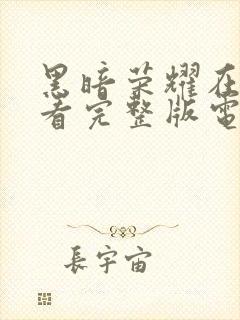 黑暗荣耀在
看完整版電
長宇宙